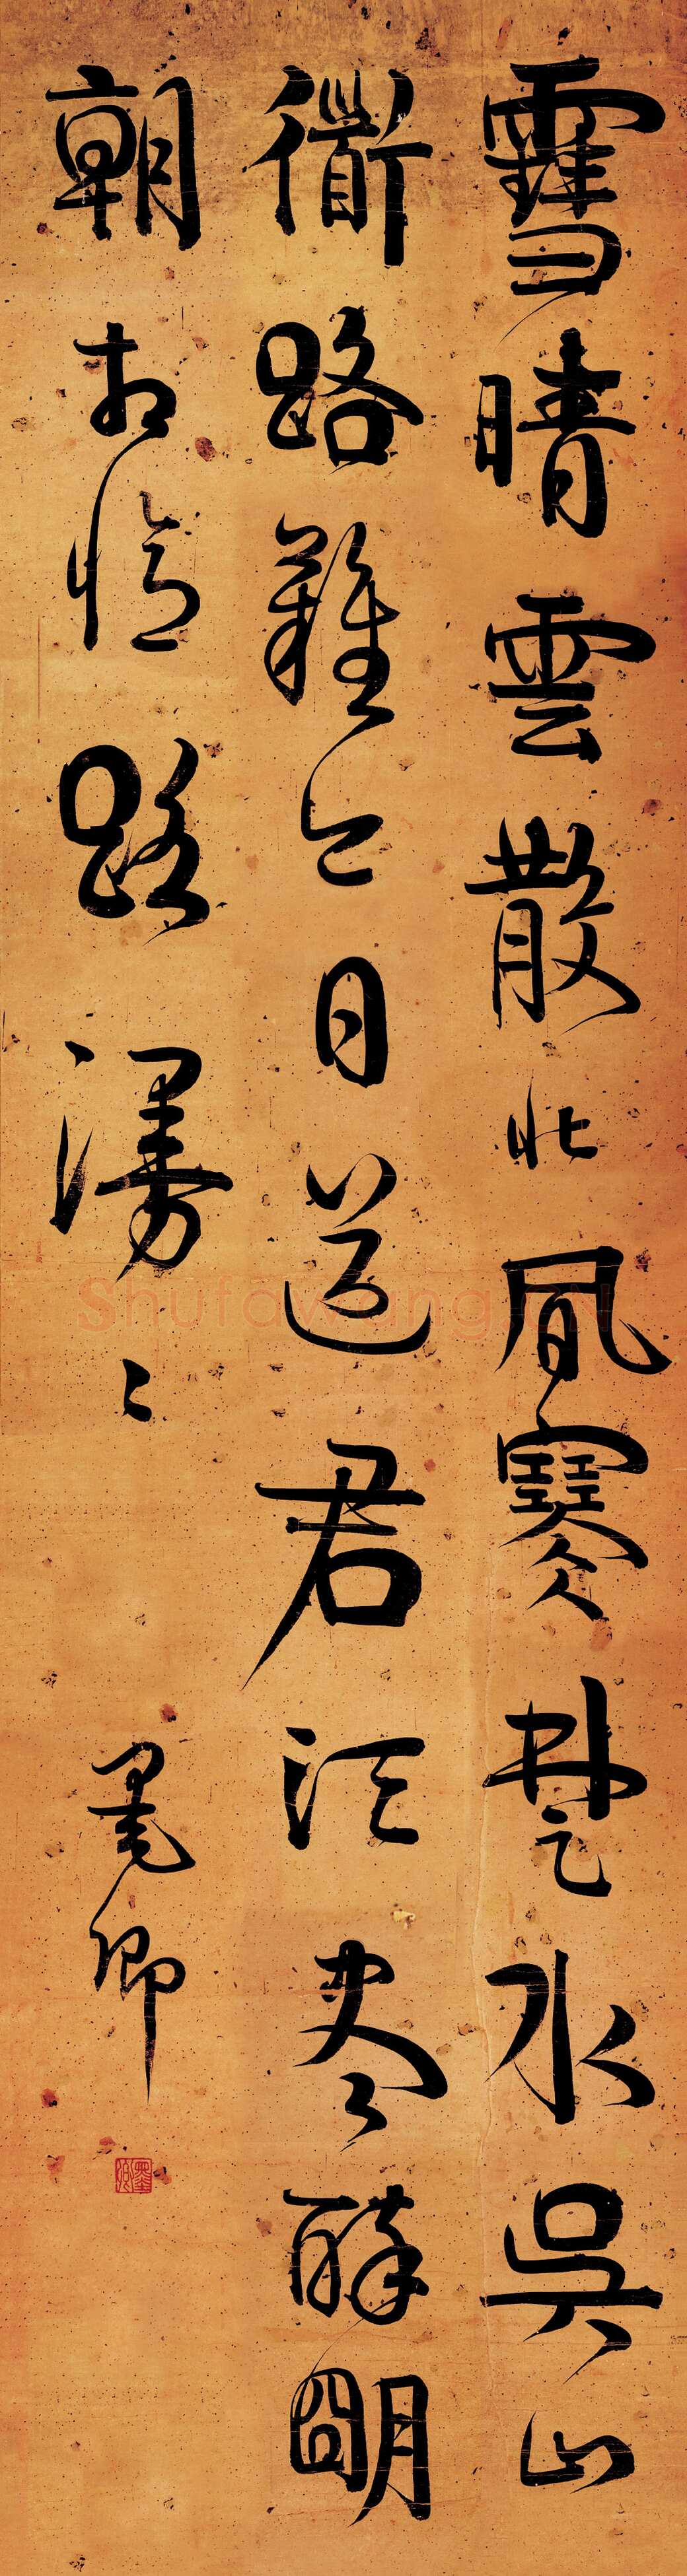 雪晴雲散北風寒楚水吳山
衜路難今日送君須盡醉朙
朝相憶路漫〻
墨卿
Shufawang.CN